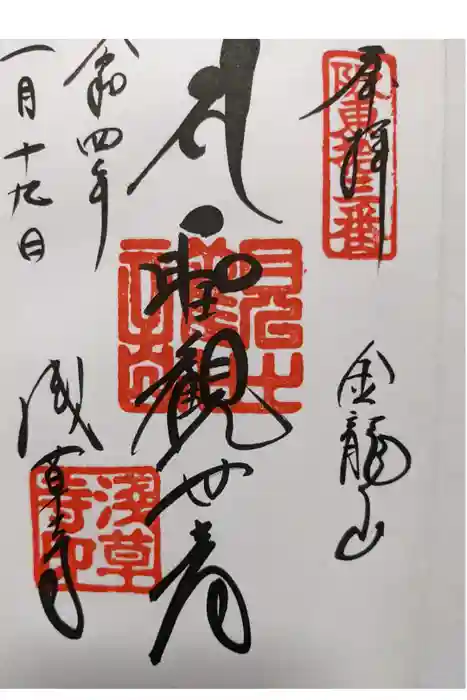 奉拝
阪東拾三番
金龍山
聖観世音
浅草寺
淺草
寺印
令和四年
一月十九日